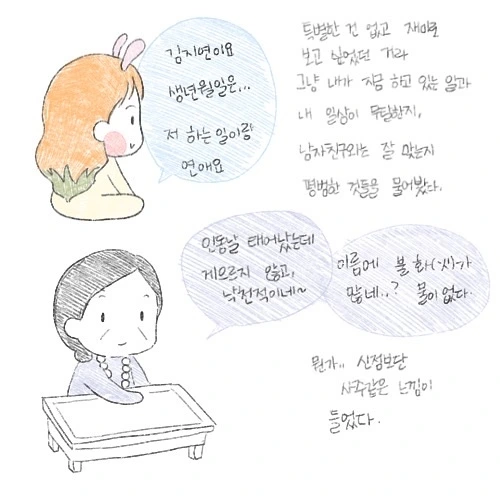 김지연이요
생년월일은,,,
저 하는일이랑
연애요
특별한 건 없고 재미로
보고 싶었던 거라
그냥 내가 지금 하고 있는 일과
내 일상이 무탈한지,
남자친구와는 잘 맞는지
평범한 것들을 물어봤다.
인동날 태어났는데
게으르지 않고,
낙천적이네~
이름에 불 화(火)가
많네..? 물이 없다.
뭔가.. 신점보단
사주같은 느낌이
들었다.